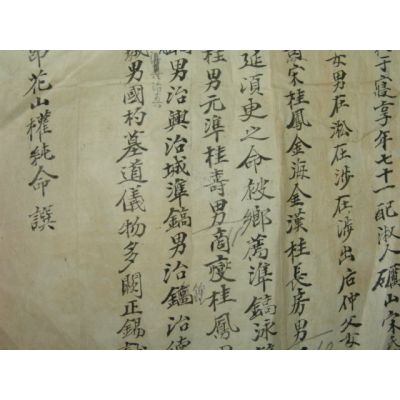 于寢享年七十一配淑人礪山宋
女男在淞在涉在洙出后仲父女
宋桂鳳金海金漢桂長房男
延須更之命被鄕薦準鎬泳
桂男元準桂壽男商燮桂鳳男
男治興治城準鎬男治鎬治德
男國杓墓道儀物多闕正錫
印花山權純命譔